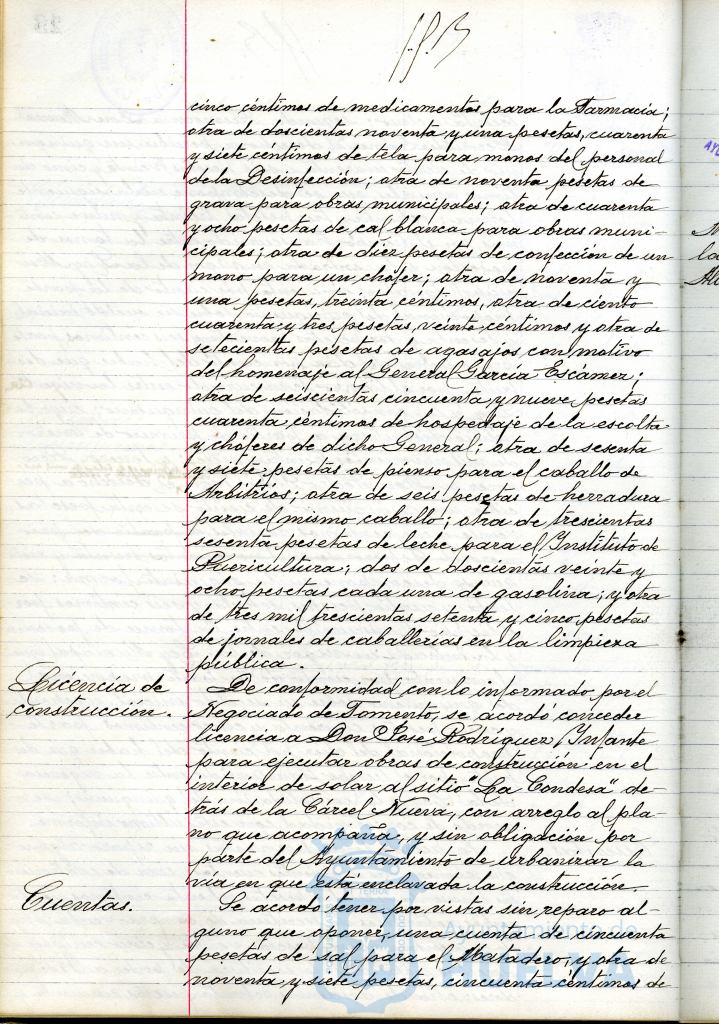 cinco céntimos de medicamentos para la Farmacia;
otra de doscientas noventa y una pesetas, cuarenta
y siete céntimos de tela para monos del personal
de la Desinfección; otra de noventa pesetas de
grava para obras municipales; otra de cuarenta
y ocho pesetas de cal blanca para obras muni-
cipales; otra de diez pesetas de confección de un
mono para un chófer; otra de noventa y
una pesetas, treinta céntimos, otra de ciento
cuarenta y tres pesetas, veinte céntimos y otra de
setecientas pesetas de agasajos con motivo
del homenaje al General García Escámez;
otra de seiscientas cincuenta y nueve pesetas
cuarenta céntimos de hospedaje de la escolta
y chóferes de dicho General; otra de sesenta
y siete pesetas de pienso para el caballo de
Arbitrios; otra de seis pesetas de herradura
para el mismo caballo; otra de trescientas
sesenta pesetas de leche para el Instituto de
Puericultura; dos de doscientas veinte y
ocho pesetas cada una de gasolina; y otra
de tres mil trescientas setenta y cinco pesetas
de jornales de caballerías en la limpieza
pública.
Licencia de
construcción.
De conformidad con lo informado por el
Negociado de Fomento, se acordó conceder
licencia a Don José Rodríguez Infante
para ejecutar obras de construcción en el
interior de solar al sitio "La Condesa" de-
trás de la Cárcel Nueva, con arreglo al pla-
no que acompaña, y sin obligación por
parte del Ayuntamiento de urbanizar la
vía en que está enclavada la construcción.
Cuentas.
Se acordó tener por vistas sin reparo al-
guno que oponer, una cuenta de cincuenta
pesetas de sal para el Matadero; y otra de
noventa y siete pesetas, cincuenta céntimos de
Ayuntamiento de
HUELVA